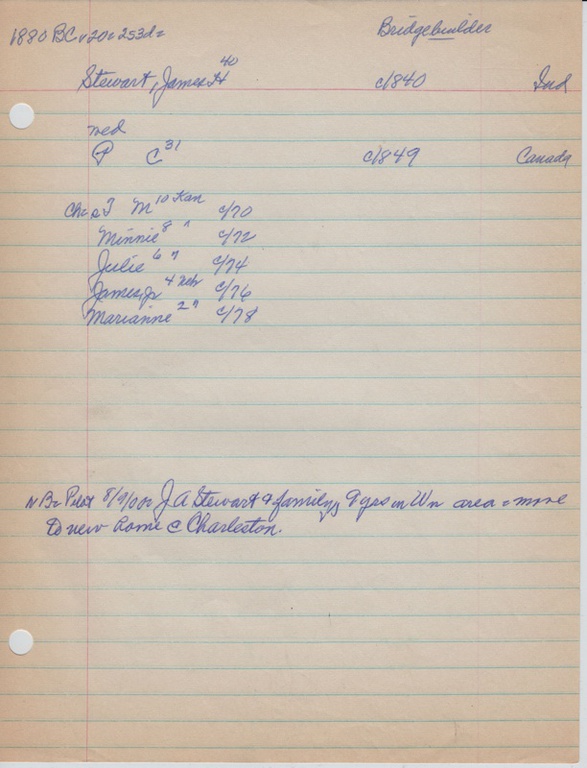 1880 BC v20=253d=
Bridgebuilder
Stewart, James H 40 c/1840 Ind
med
P C 31 c/1849 Canada
Ch= a J M 10 Kan c/70
Minnie 8 " c/72
Julie 6 " c/74
James, jr 4 Neb c/76
Marianne 2 " c/78
N B= Pilot 8/9/00= J A Stewart & family, 9 yrs in Wn area = move
to new home c Charleston.